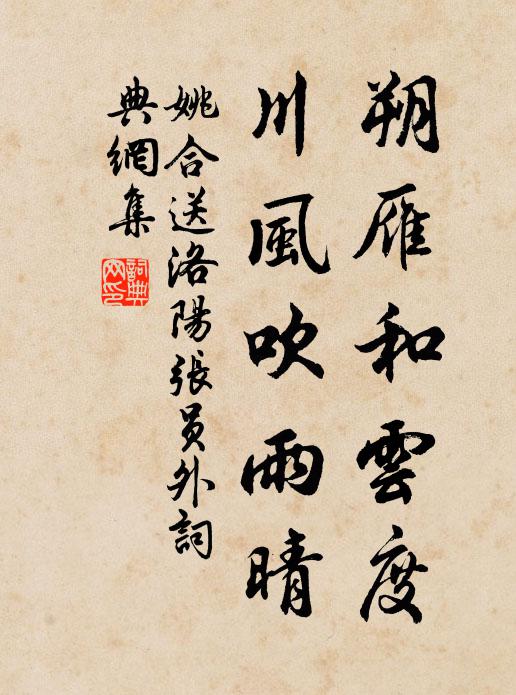 朔雁和雲度
川風吹雨晴
姚合送洛陽張員外詞
典網集
詞典
网印